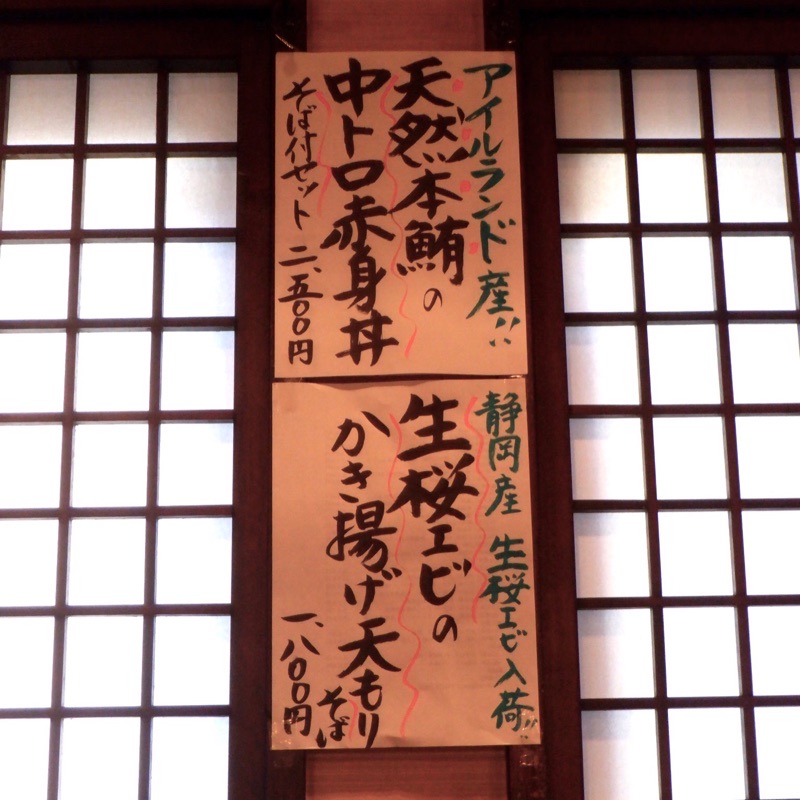 アイルランド産!!
天然本鮪の
中トロ赤身丼
そば付セット 二、五〇〇円
静岡産 生桜エビ入荷!!
生桜エビの
かき揚げ天もり
そば
一、八〇〇円